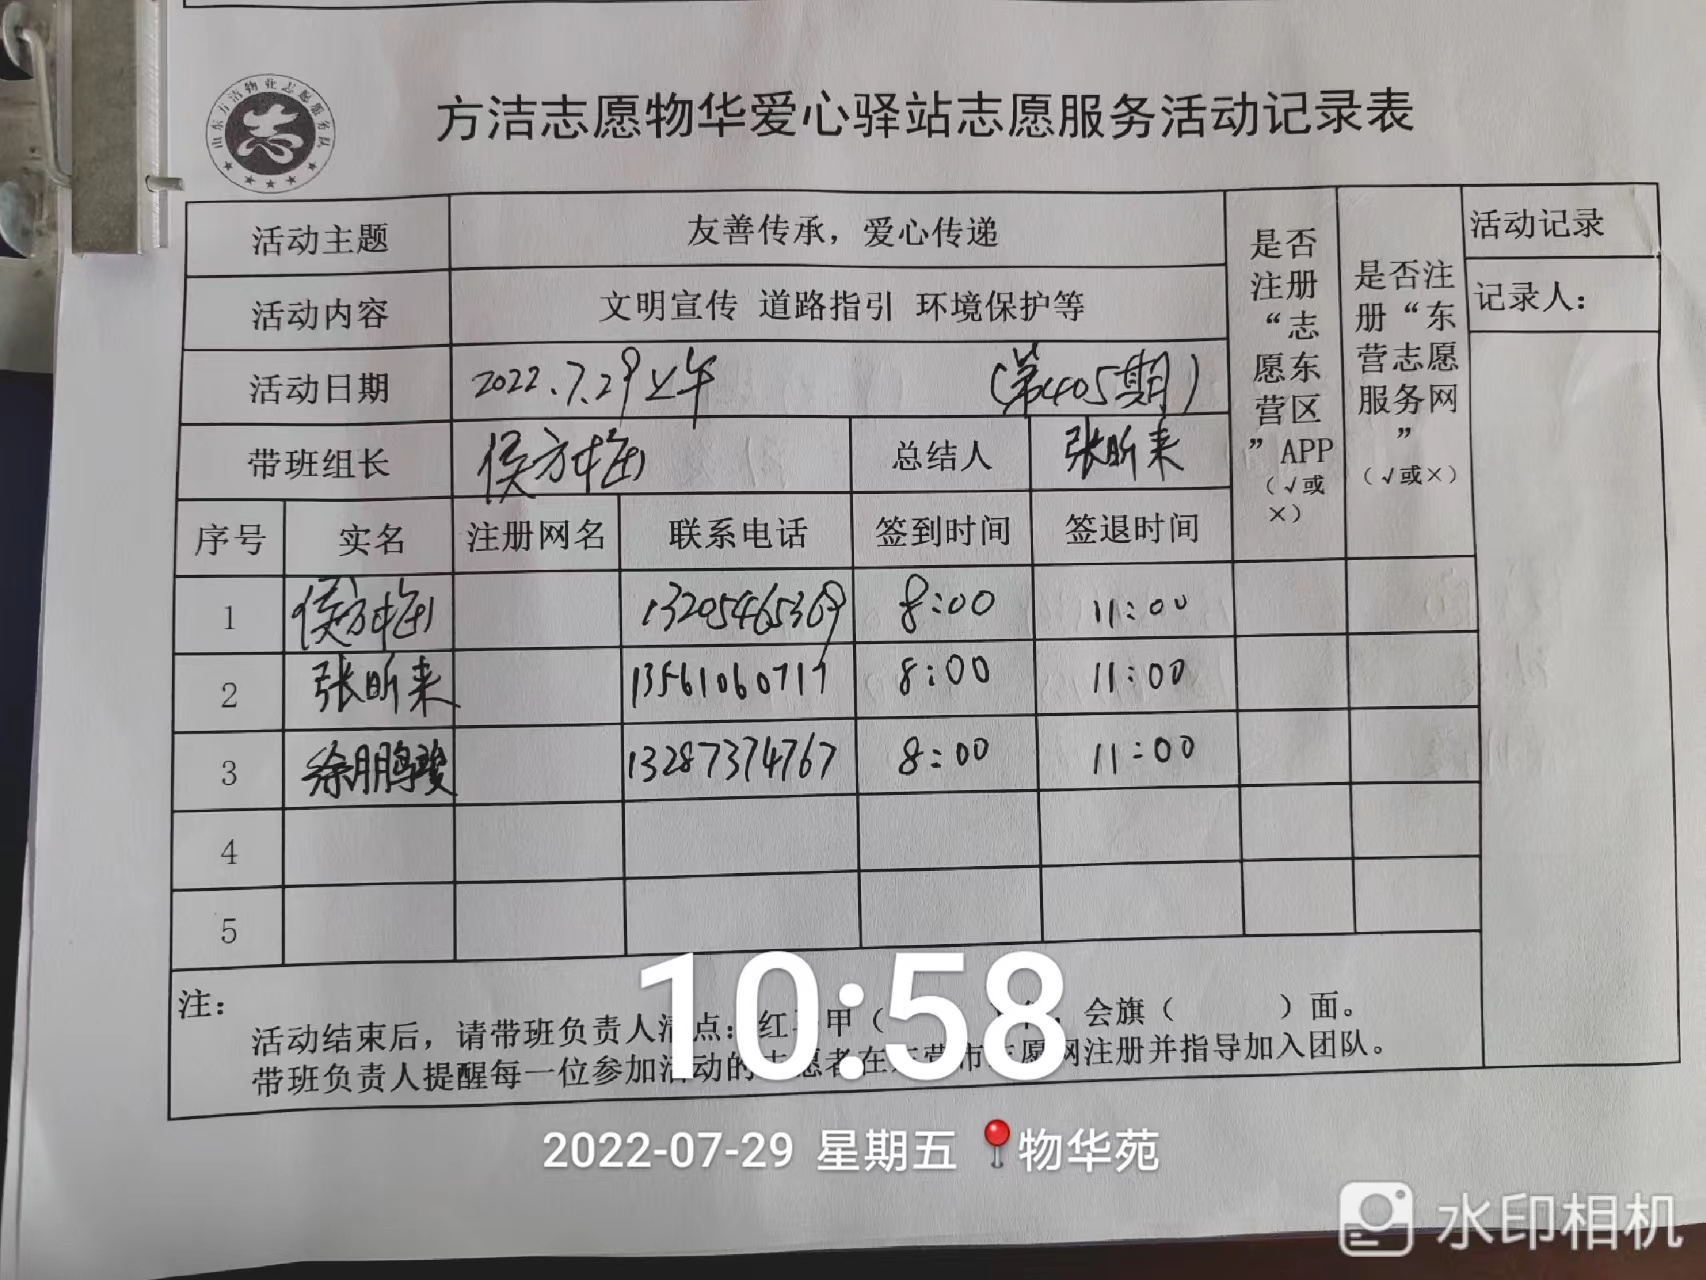 山东方洁物业志愿服务队
志
方洁志愿物华爱心驿站志愿服务活动记录表
活动主题 友善传承，爱心传递 是否注册“志愿东营区”APP（√或×） 是否注册“东营志愿服务网”（√或×） 活动记录
活动内容 文明宣传 道路指引 环境保护等 记录人：
活动日期 2022.7.29上午 （第405期）
带班组长 侯方梅 总结人 张昕来
序号 实名 注册网名 联系电话 签到时间 签退时间
1 侯方梅 13205465369 8:00 11:00
2 张昕来 13561060717 8:00 11:00
3 徐鹏骏 13287374767 8:00 11:00
4
5
注：
活动结束后，请带班负责人清点：红马甲（ ）件，会旗（ ）面。
带班负责人提醒每一位参加活动的志愿者在东营市志愿网注册并指导加入团队。
10:58
2022-07-29 星期五 物华苑
水印相机